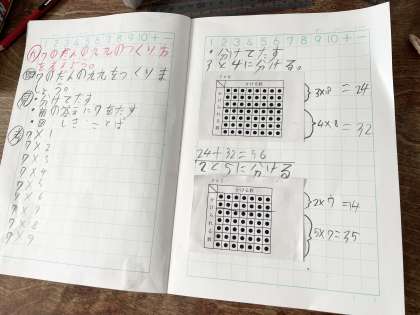 1 2 3 4 5 6 7 8 9 10 + −
7のだんの九九のつくり方
を考えよう。
7のだんの九九をつくりま
しょう。
・分けてたす
・前の答えに7をたす
・図 しき ことば
7×1
7×2
7×3
7×4
7×5
7×6
7×7
7×8
7×9
1 2 3 4 5 6 7 8 9 10 + −
・分けてたす
3と4に分ける。
7×8
かける数
かけられる数
3×8=24
4×8=32
24+32=56
2と5に分ける
7×7
かける数
かけられる数
2×7=14
5×7=35